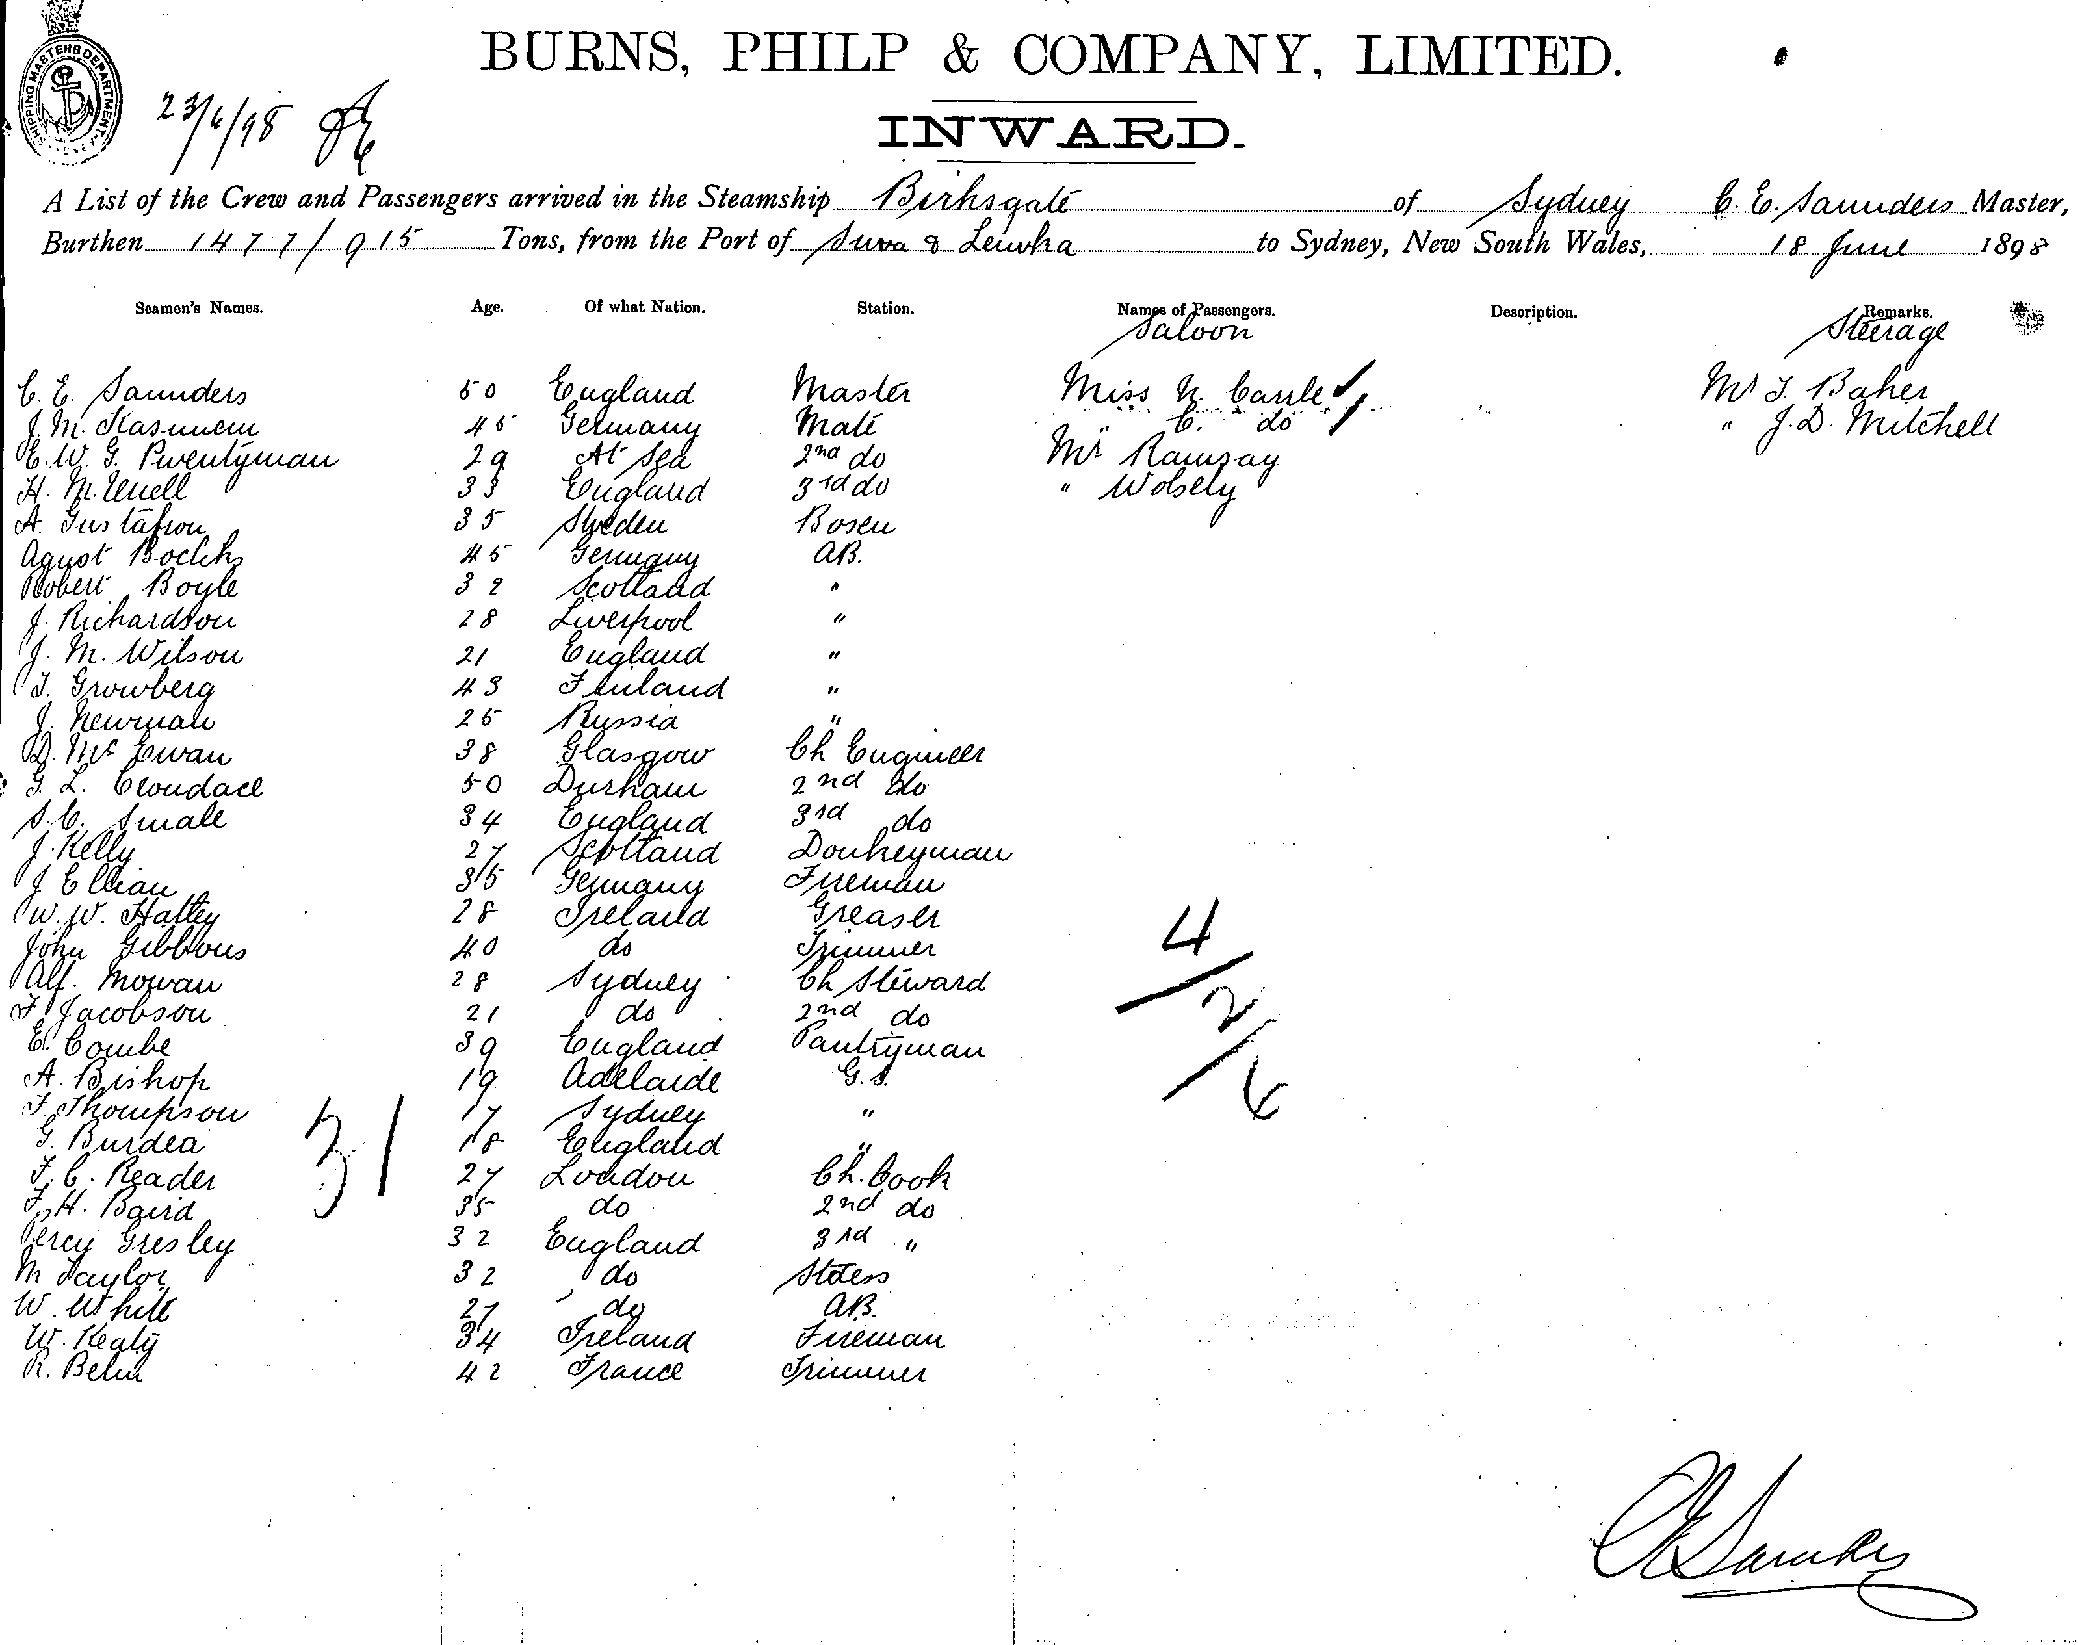 BURNS, PHILP & COMPANY, LIMITED.
SHIPPING MASTERS DEPARTMENT
23/6/98
INWARD.
A List of the Crew and Passengers arrived in the Steamship Birksgate of Sydney C. E. Saunders Master,
Burthen 1477/915 Tons, from the Port of Suva & Levuka to Sydney, New South Wales, 18 June 1898
Seamen's Names. Age. Of what Nation. Station. Names of Passengers. Description. Remarks.
Saloon Steerage
C. E. Saunders 50 England Master Miss N. Mr T. Baker
J. M. 45 Germany Mate " C. do " J. D. Mitchell
E. W. G. Pwentyman 29 At Sea 2nd do Mr Ramsay
H. M. 33 England 3rd do " Wolsely
A. Gustafson 35 Sweden Bosen
Agust 45 Germany AB.
Robert Boyle 32 Scotland "
J. Richardson 28 Liverpool "
J. M. Wilson 21 England "
T. Growberg 43 Finland "
J. Newman 25 Russia "
D. Mc Ewan 38 Glasgow Ch Engineer
G. L. Croudace 50 Durham 2nd do
S. C. Smale 34 England 3rd do
J. Kelly 27 Scotland Donkeyman
J Ellian 35 Germany Fireman
W. W. Hatley 28 Ireland Greaser
John Gibbons 40 do Trimmer
Alf. Mowan 28 Sydney Ch Steward
F. Jacobson 21 do 2nd do
E. Combe 39 England Pantryman
A. Bishop 19 Adelaide G. S.
F. Thompson 17 Sydney "
G. Burdea 18 England "
F. C. Reader 27 London Ch. Cook
F. H. Baird 35 do 2nd do
Percy Gresley 32 England 3rd "
M Taylor 32 do Stdess
W. White 27 do AB.
W. Kealy 34 Ireland Fireman
R. Belin 42 France Trimmer
31
4/2/6
C E Saunders